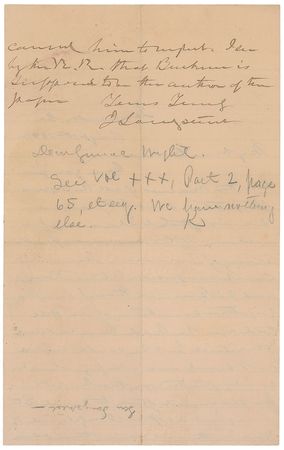 caused him to report. I see
by the W. R. that Buckner is
supposed to be the author of the
paper
Yours Truly
J Longstreet
Dear General Wright.
See Vol XXX, Part 2, page
65, et seq. We have nothing
else. K
Gen Longstreet